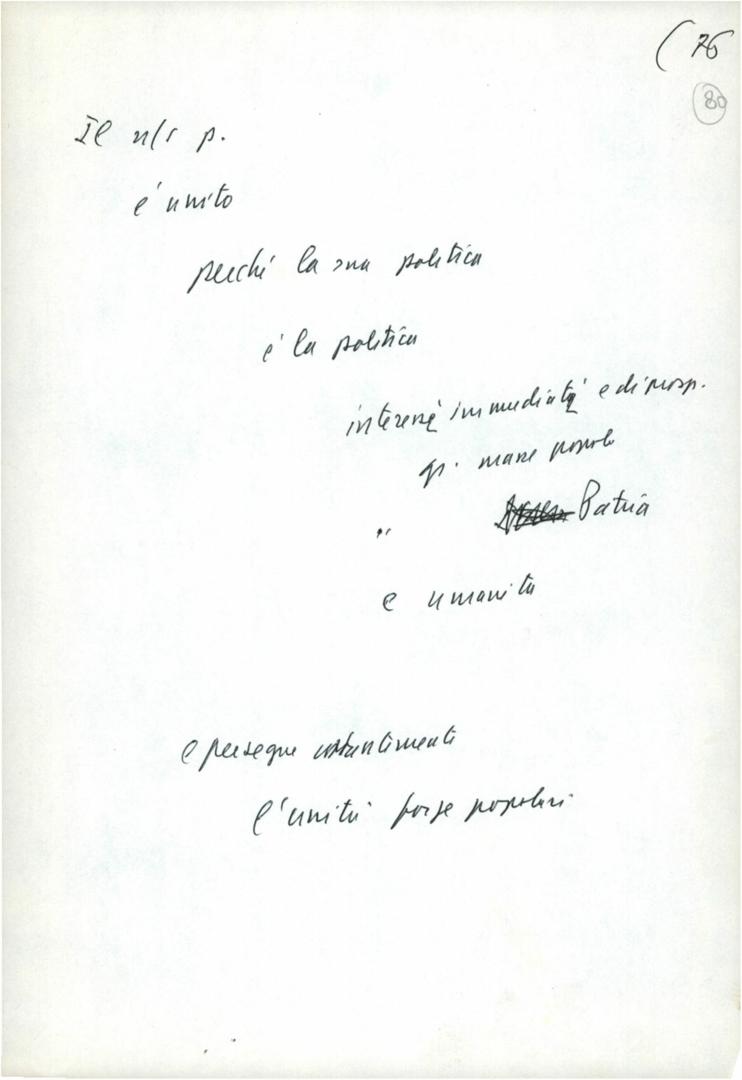 (76
80
Il n/s p.
è unito
perché la sua politica
è la politica
interessi immediati e di prosp.
gr. masse popolo
" Patria
e umanità
e persegue costantemente
l'unità forze popolari